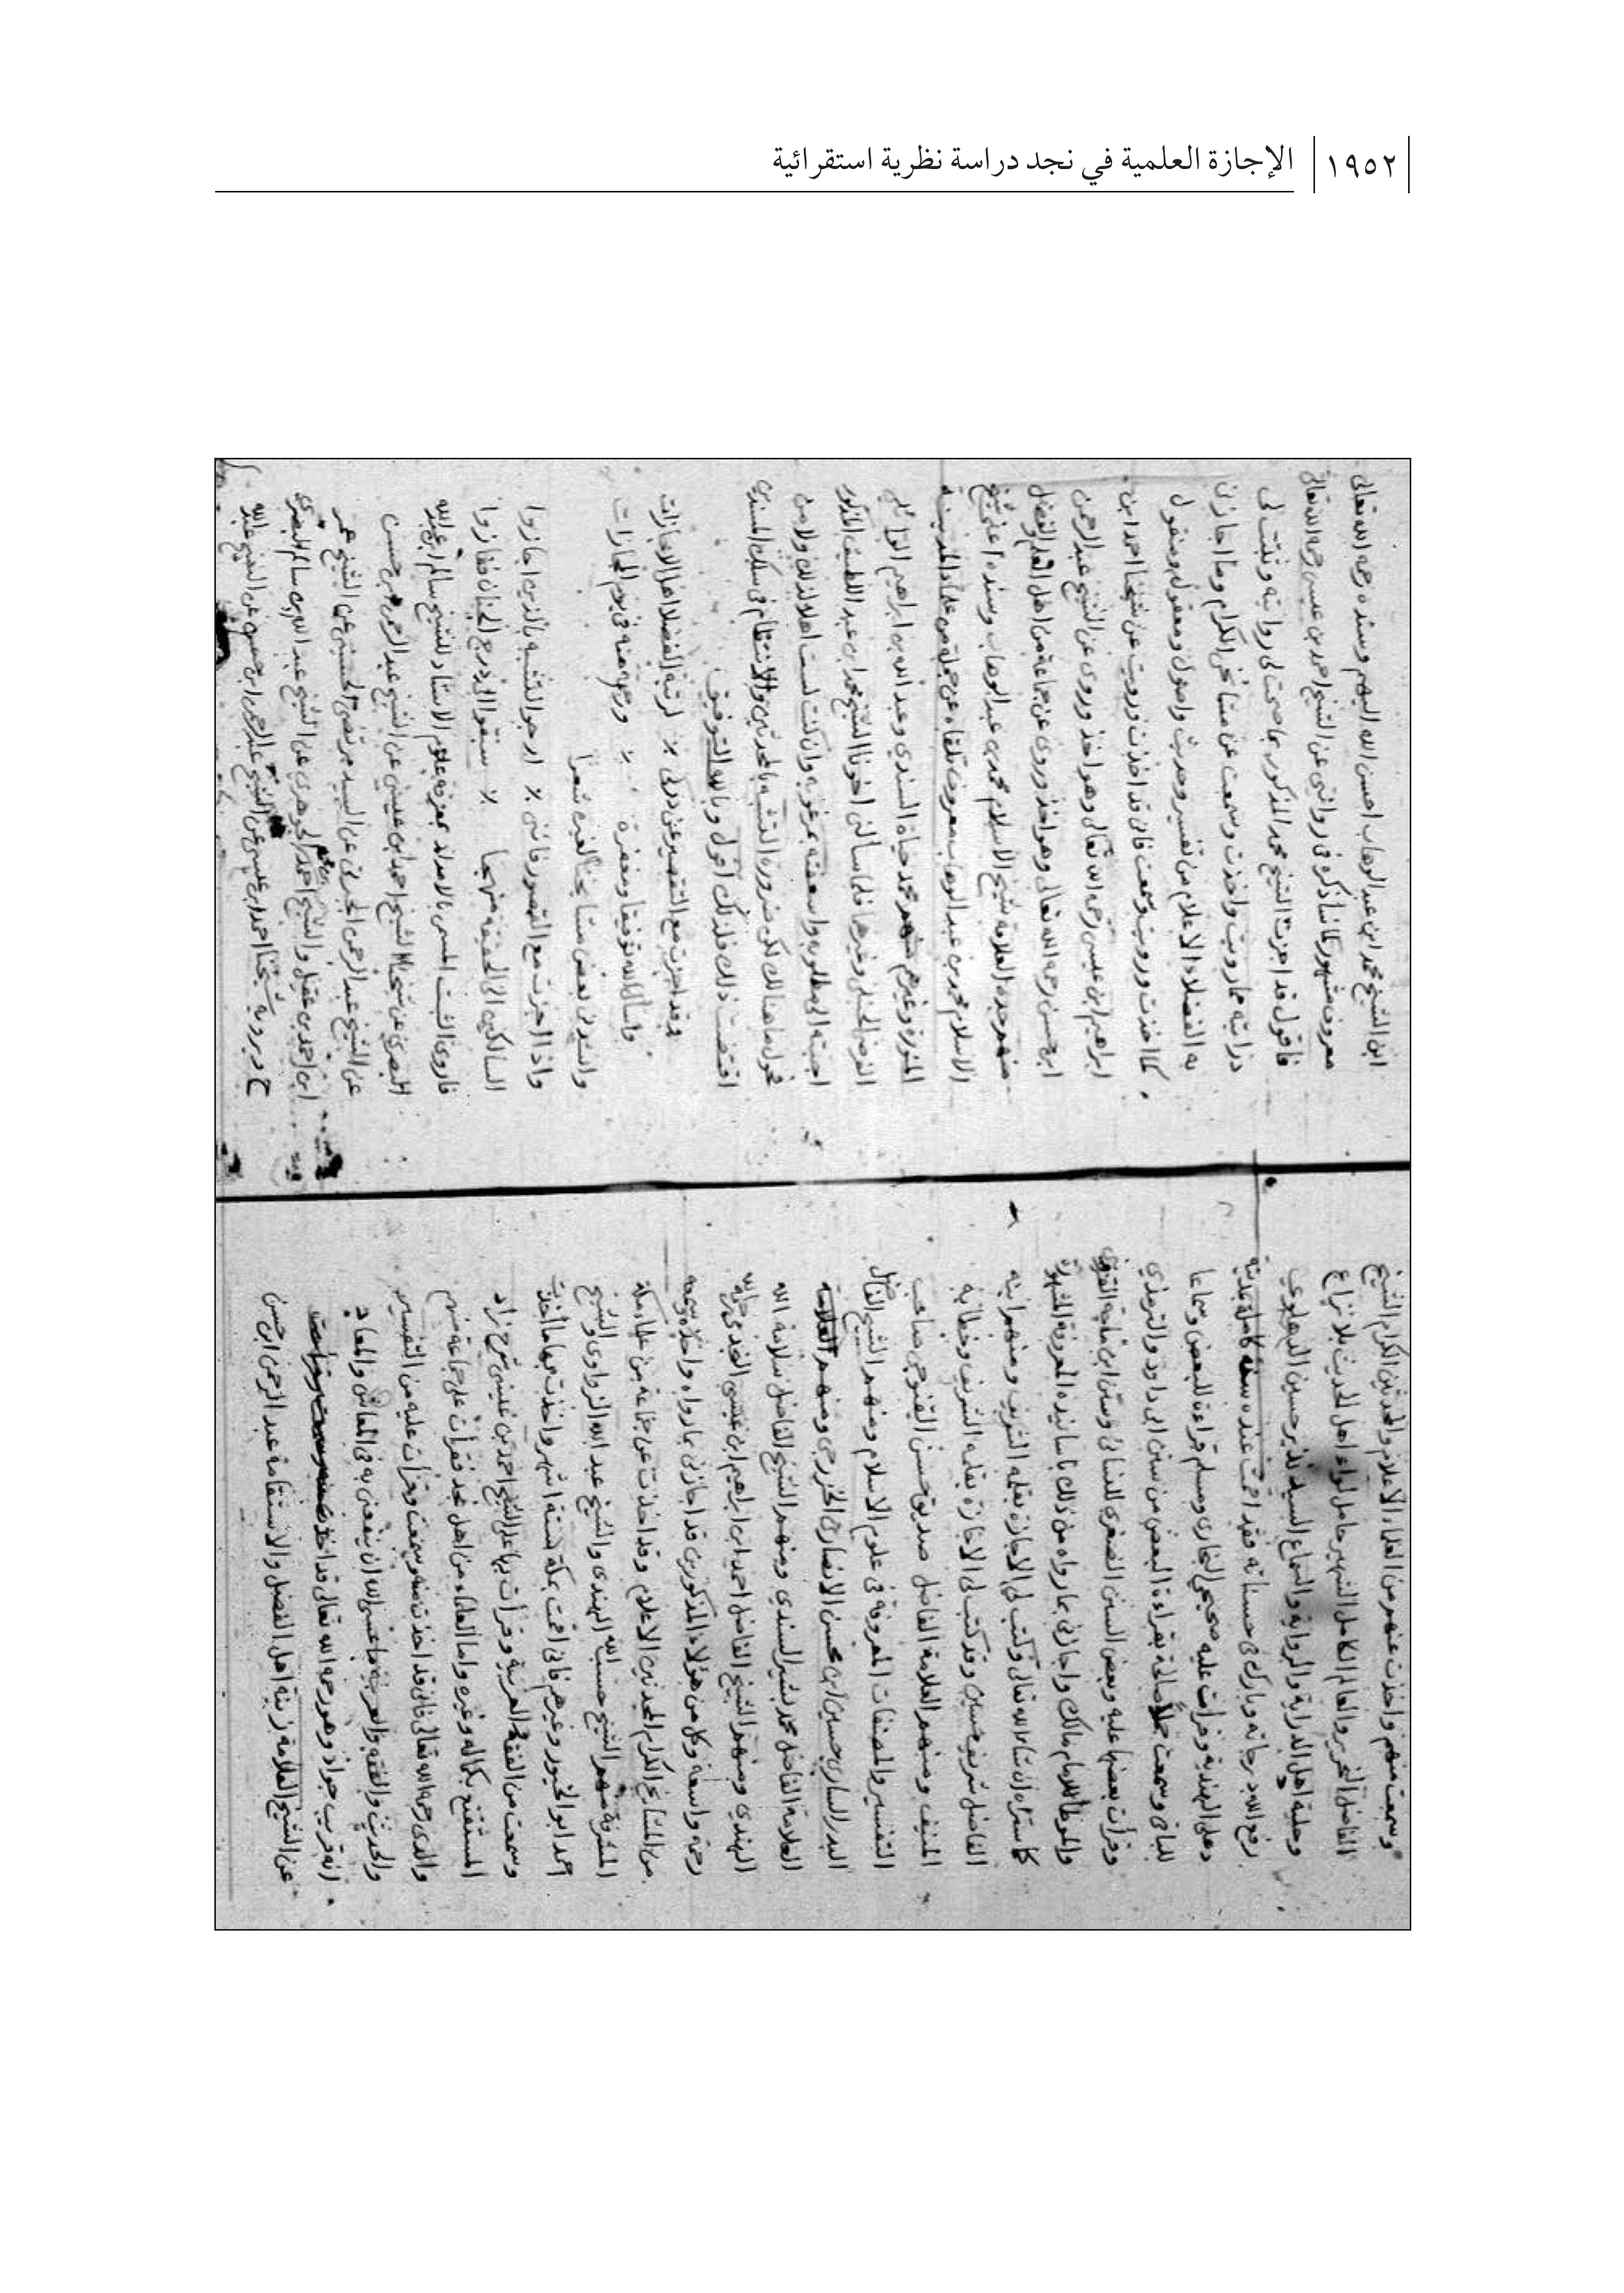 ١٩٥٢ الإجازة العلمية في نجد دراسة نظرية استقرائية
وسمعت منهم واخذت عنهم من العلماء الاعلام والمحدثين الكرام الشيخ
الفاضل النحرير والعالم الكامل الشهير حامل لواء اهل الحديث بلا نزاع
وحلية اهل الدراية والرواية والسماع السيد نذير حسين الدهلوي
رفع الله درجاته وبارك في حسناته فقد اقمت عنده سنة كاملة
دهلي الهندية وقرات عليه صحيحي البخاري ومسلم قراءة للبعض وسماعا
للباقي وسمعت جملا صالحة بقراءة البعض من سنن ابي داود والترمذي
وقرأت بعضها عليه وبعض السنن الصغرى للنسائي وسنن ابن ماجه القزويني
والموطأ للامام مالك واجازني بما رواه من ذلك باسانيده المعروفة المشهورة
كما ستراه ان شاء الله تعالى وكتب لي الاجازة بقلمه الشريف ومنهم
الفاضل شريف حسين وقد كتب لي الاجازة بقلمه الشريف وخطابه
المنيف ومنهم العلامة الفاضل صديق حسن القنوجي صاحب
التفسير والمصنفات المعروفة في علوم الاسلام ومنهم الشيخ الفاضل
البدر الساري حسين ابن محسن الانصاري الخزرجي ومنهم العلامة
العلامة الفاضل محمد بشير السندي ومنهم الشيخ الفاضل سلامة الله
الهندي ومنهم الشيخ الفاضل احمد ابن ابراهيم ابن عيسى النجدي رحمه الله
رحمة واسعة وكل من هؤلاء المذكورين قد اجازني بما رواه واخذه وسمعه
من المشائخ الكرام المحدثين الاعلام وقد اخذت عن جماعة من علماء مكة
المشرفة منهم الشيخ حسب الله الهندي والشيخ عبد الله الزواوي والشيخ
احمد ابو الخيور وغيرهم فاني اقمت بمكة ستة اشهر واخذت بها ما اخذت
وسمعت من الفقه والعربية وقرأت بها على الشيخ احمد بن عيسى شرح زاد
المستقنع بكماله وغيره واما العلماء من اهل نجد فقرأت على جماعة منهم
والدي رحمه الله تعالى فاني قد اخذت منه وسمعت وقرأت عليه من التفسير
والحديث والفقه والعربية ما عسى الله ان ينفعني به في المعاش والمعاد
انه قريب جواد وهو رحمه الله تعالى قد اخذ
عن الشيخ العلامة زينة اهل الفضل والاستقامة عبد الرحمن ابن حسن
ابن الشيخ محمد ابن عبد الوهاب احسن الله اليهم وسنده رحمه الله تعالى
معروف مشهور كما سأذكره في روايتي عن الشيخ احمد بن عيسى رحمه الله تعالى
فاقول قد اجزت الشيخ محمد المذكور بما صحت لي روايته وثبتت لي
درايته مما رويت واخذت وسمعت عن مشائخي الكرام وما اجازني
به الفضلاء الاعلام من تفسير وحديث واصول ومعقول ومنقول
كما اخذت ورويت وسمعت فاني قد اخذت ورويت عن شيخنا احمد ابن
ابراهيم ابن عيسى رحمه الله تعالى وهو اخذ وروى عن الشيخ عبد الرحمن
ابن حسن رحمه الله تعالى وهو اخذ وروى عن جماعة من اهل العلم والفضل
منهم جده العلامة شيخ الاسلام محمد بن عبد الوهاب وسنده اعني شيخ
الاسلام محمد بن عبد الوهاب معروف تلقاه عن جملة من علماء المدينة
المنورة وغيرهم منهم محمد حياة السندي وعبد الله بن ابراهيم
الفرضي الحنبلي وغيرهما فلما سألني اخونا الشيخ محمد ابن عبد اللطيف المذكور
اجبته الى مطلوبه واسعفته بمرغوبه وان كنت لست اهلا لذلك ولا من
فحول ما هنالك لكن ضرورة التشبه بالمحدثين والانتظام في سلك المسندين
اقتضت ذلك فلذلك اقول وبالله التوفيق
وقد اجزت مع التقصير عن دركي ٪ لرتبة الفضلاء اهل الاجازات
واسأل الله توفيقا ومغفرة ٪ ورحمة منه في يوم المجازات
وانشدني بعض مشايخنا لغيره شعرا
واذا اجزت مع القصور فانني ٪ ارجو التشبه بالذين اجازوا
السالكين الى الحقيقة منهجا ٪ سبقوا الى درج الجنان ففازوا
فاروي الثبت المسمى بالامداد بمعرفة علوم الاسناد للشيخ سالم ابن عبد الله
البصري عن شيخنا الشيخ احمد ابن عيسى عن الشيخ عبد الرحمن بن حسن
عن الشيخ عبد الرحمن الجبرتي عن السيد مرتضى الحسيني عن الشيخ عمر
ابن احمد بن عقيل والشيخ احمد الجوهري عن الشيخ عبد الله بن سالم البصري
ح ويرويه شيخنا احمد ابن عيسى عن الشيخ عبد الرحمن ابن حسن عن الشيخ عبد الله